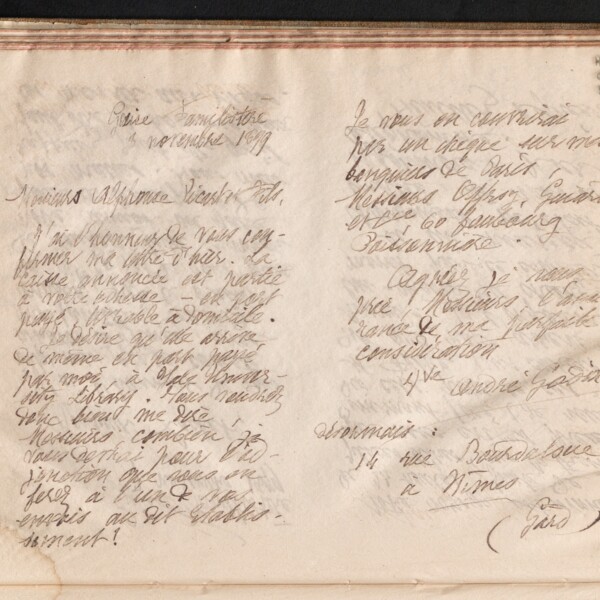 Guise Familistère
3 novembre 1899
Messieurs Alphonse Picard et Fils,
J'ai l'honneur de vous con-
firmer ma lettre d'hier. La
caisse annoncée est partie
à votre adresse – en port
payé, livrable à domicile.
Je désire qu'elle arrive
de même en port payé,
par moi, à Yale Univer-
sity Library. Vous voudrez
donc bien me dire,
Messieurs combien je
vous devrai pour l'ad-
jonction que vous en
ferez à l'un de vos
envois au dit Etablis-
sement.
Je vous en couvrirai
par un chèque sur mes
banquiers de Paris,
Messieurs Offroy, Guiard
et Cie, 60 faubourg
Poissonnière.
Agréez, je vous
prie, Messieurs, l'assu
rance de ma parfaite
considération
Vve André Godin
désormais :
14 rue Bourdaloue
à Nîmes
(Gard)